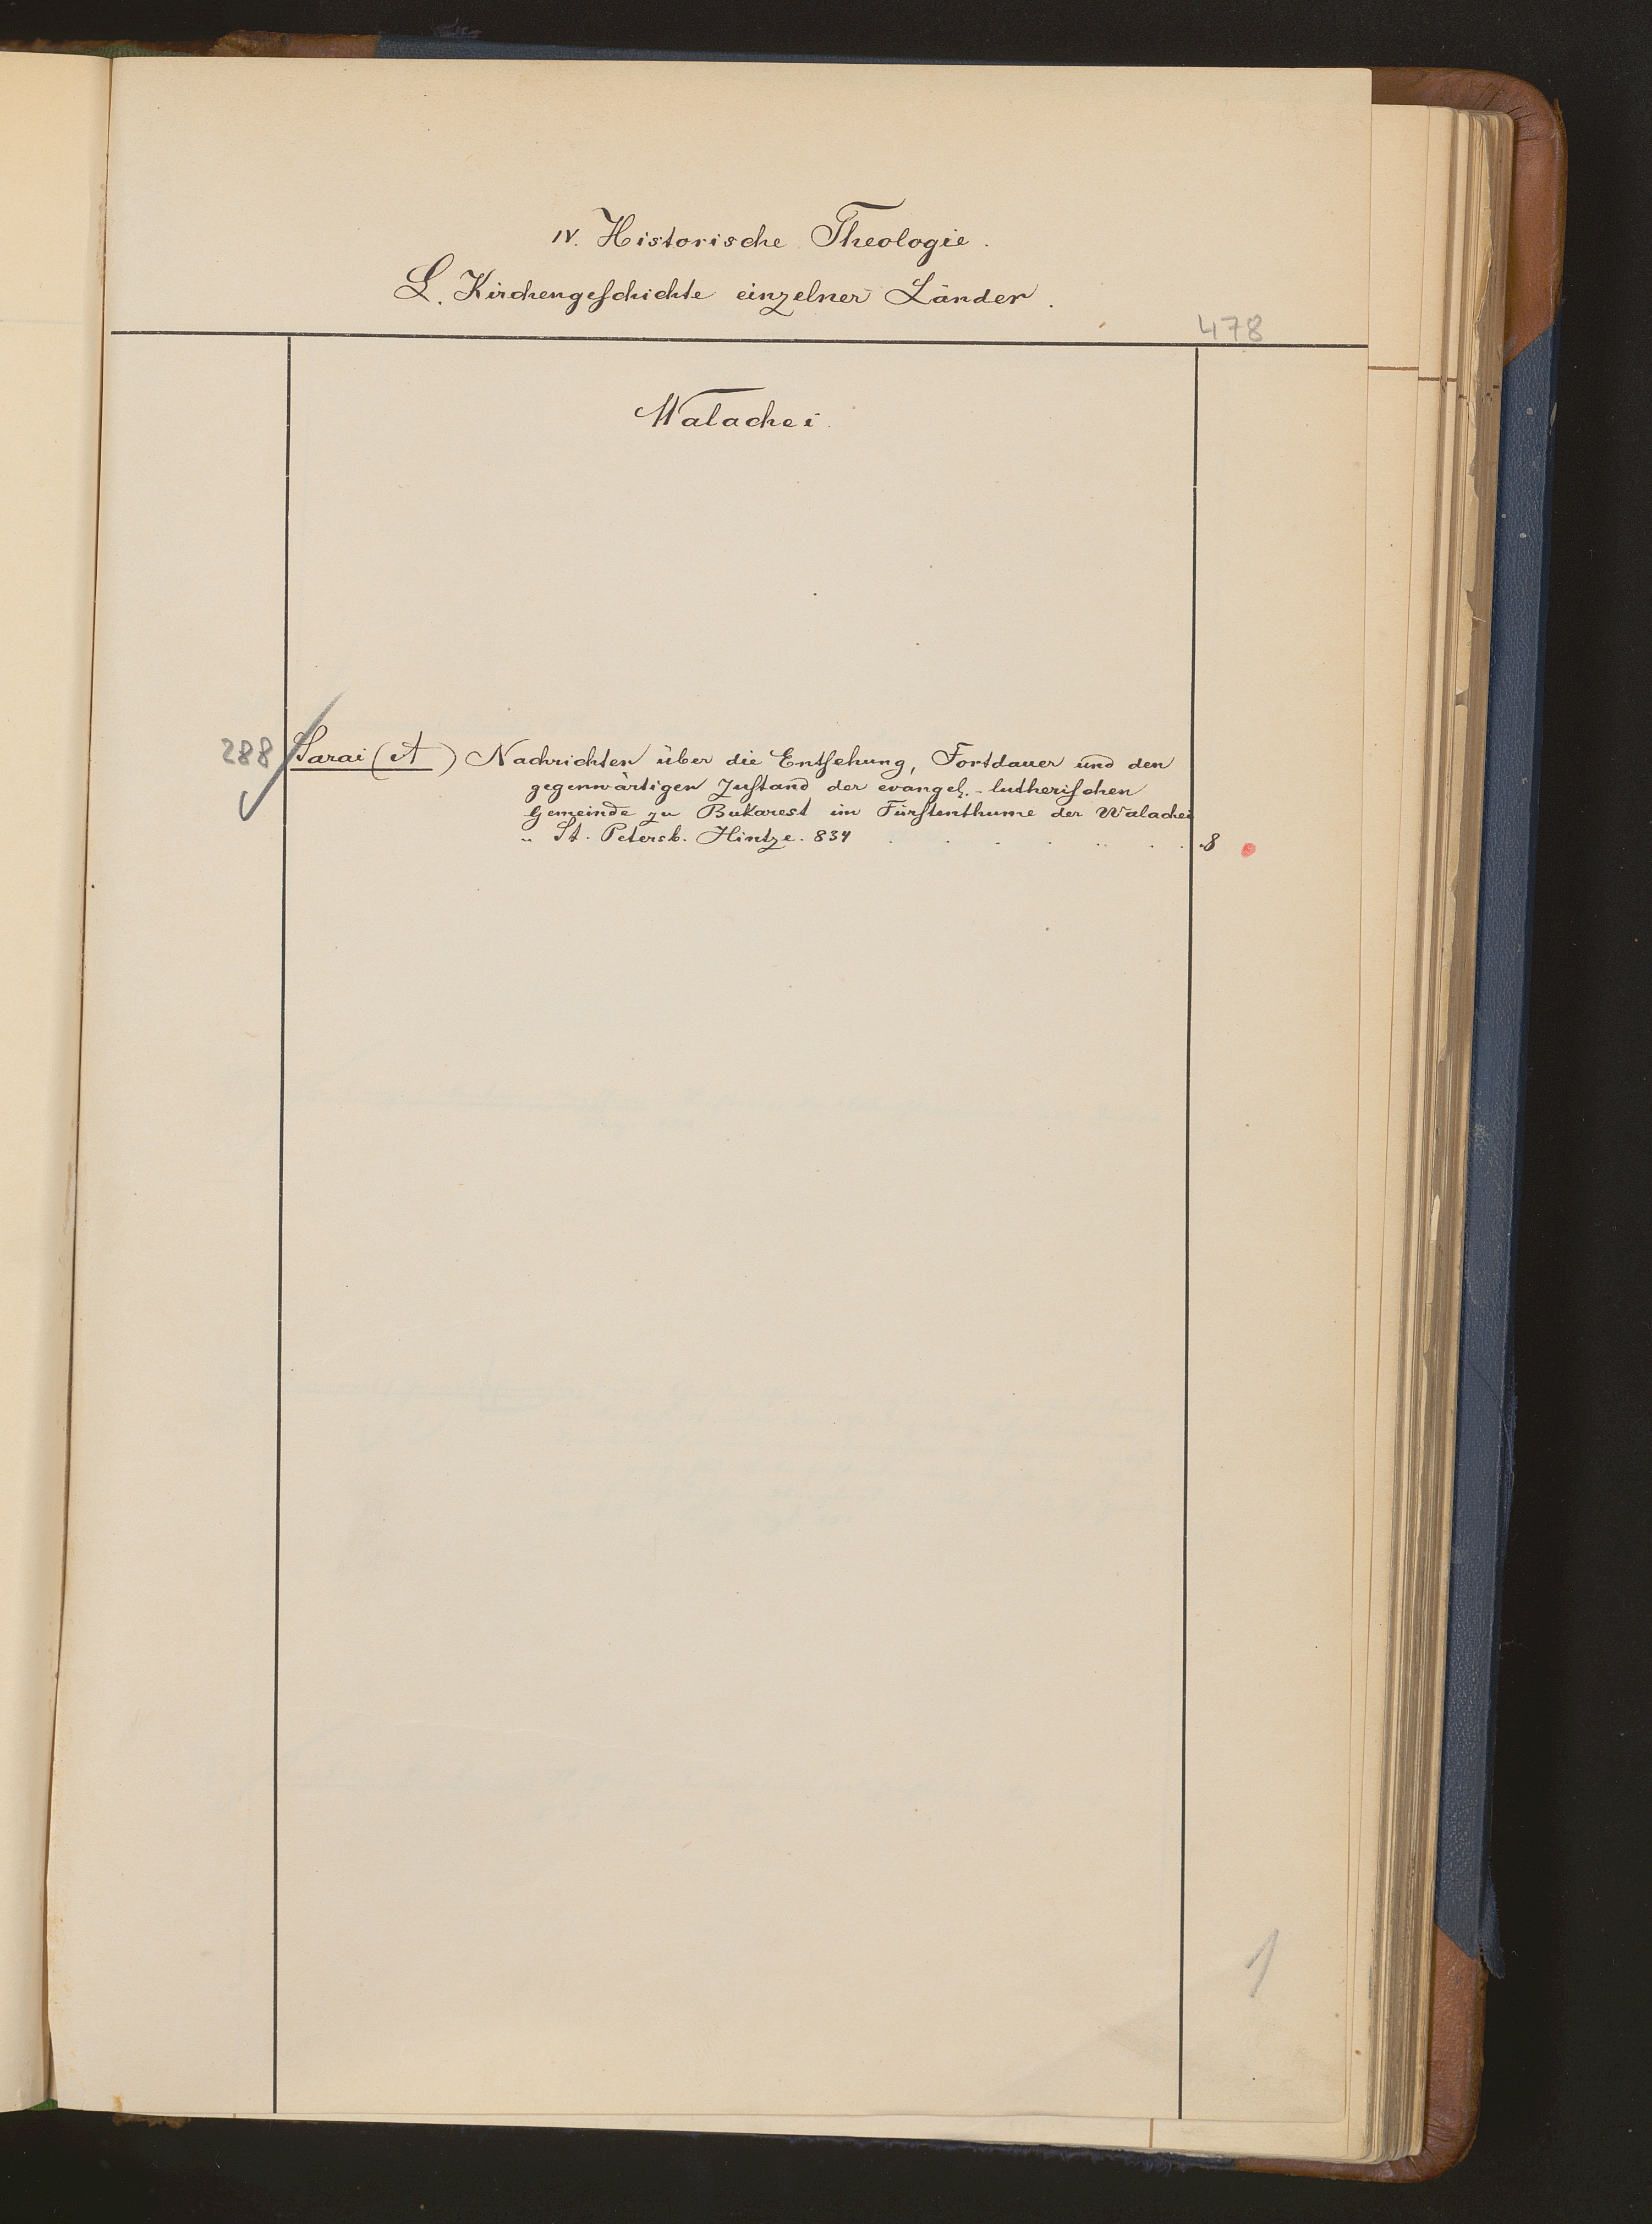 IV. Historische Theologie.
L. Kirchengeschichte einzelner Länder.
478
Walachei.
288 Sarai (A) Nachrichten über die Entsehung, Fortdauer und den
gegenwärtigen Zustand der evangel.-lutherischen
Gemeinde zu Bukarest im Fürstenthume der Walachei
„ St. Petersb. Hintze. 834 . . . . . . 8
1